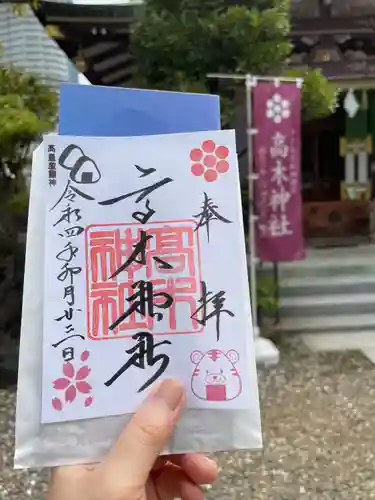 奉拝
高木神社
高木
神社
令和四年卯月廿三日
高皇産靈神
高木神社